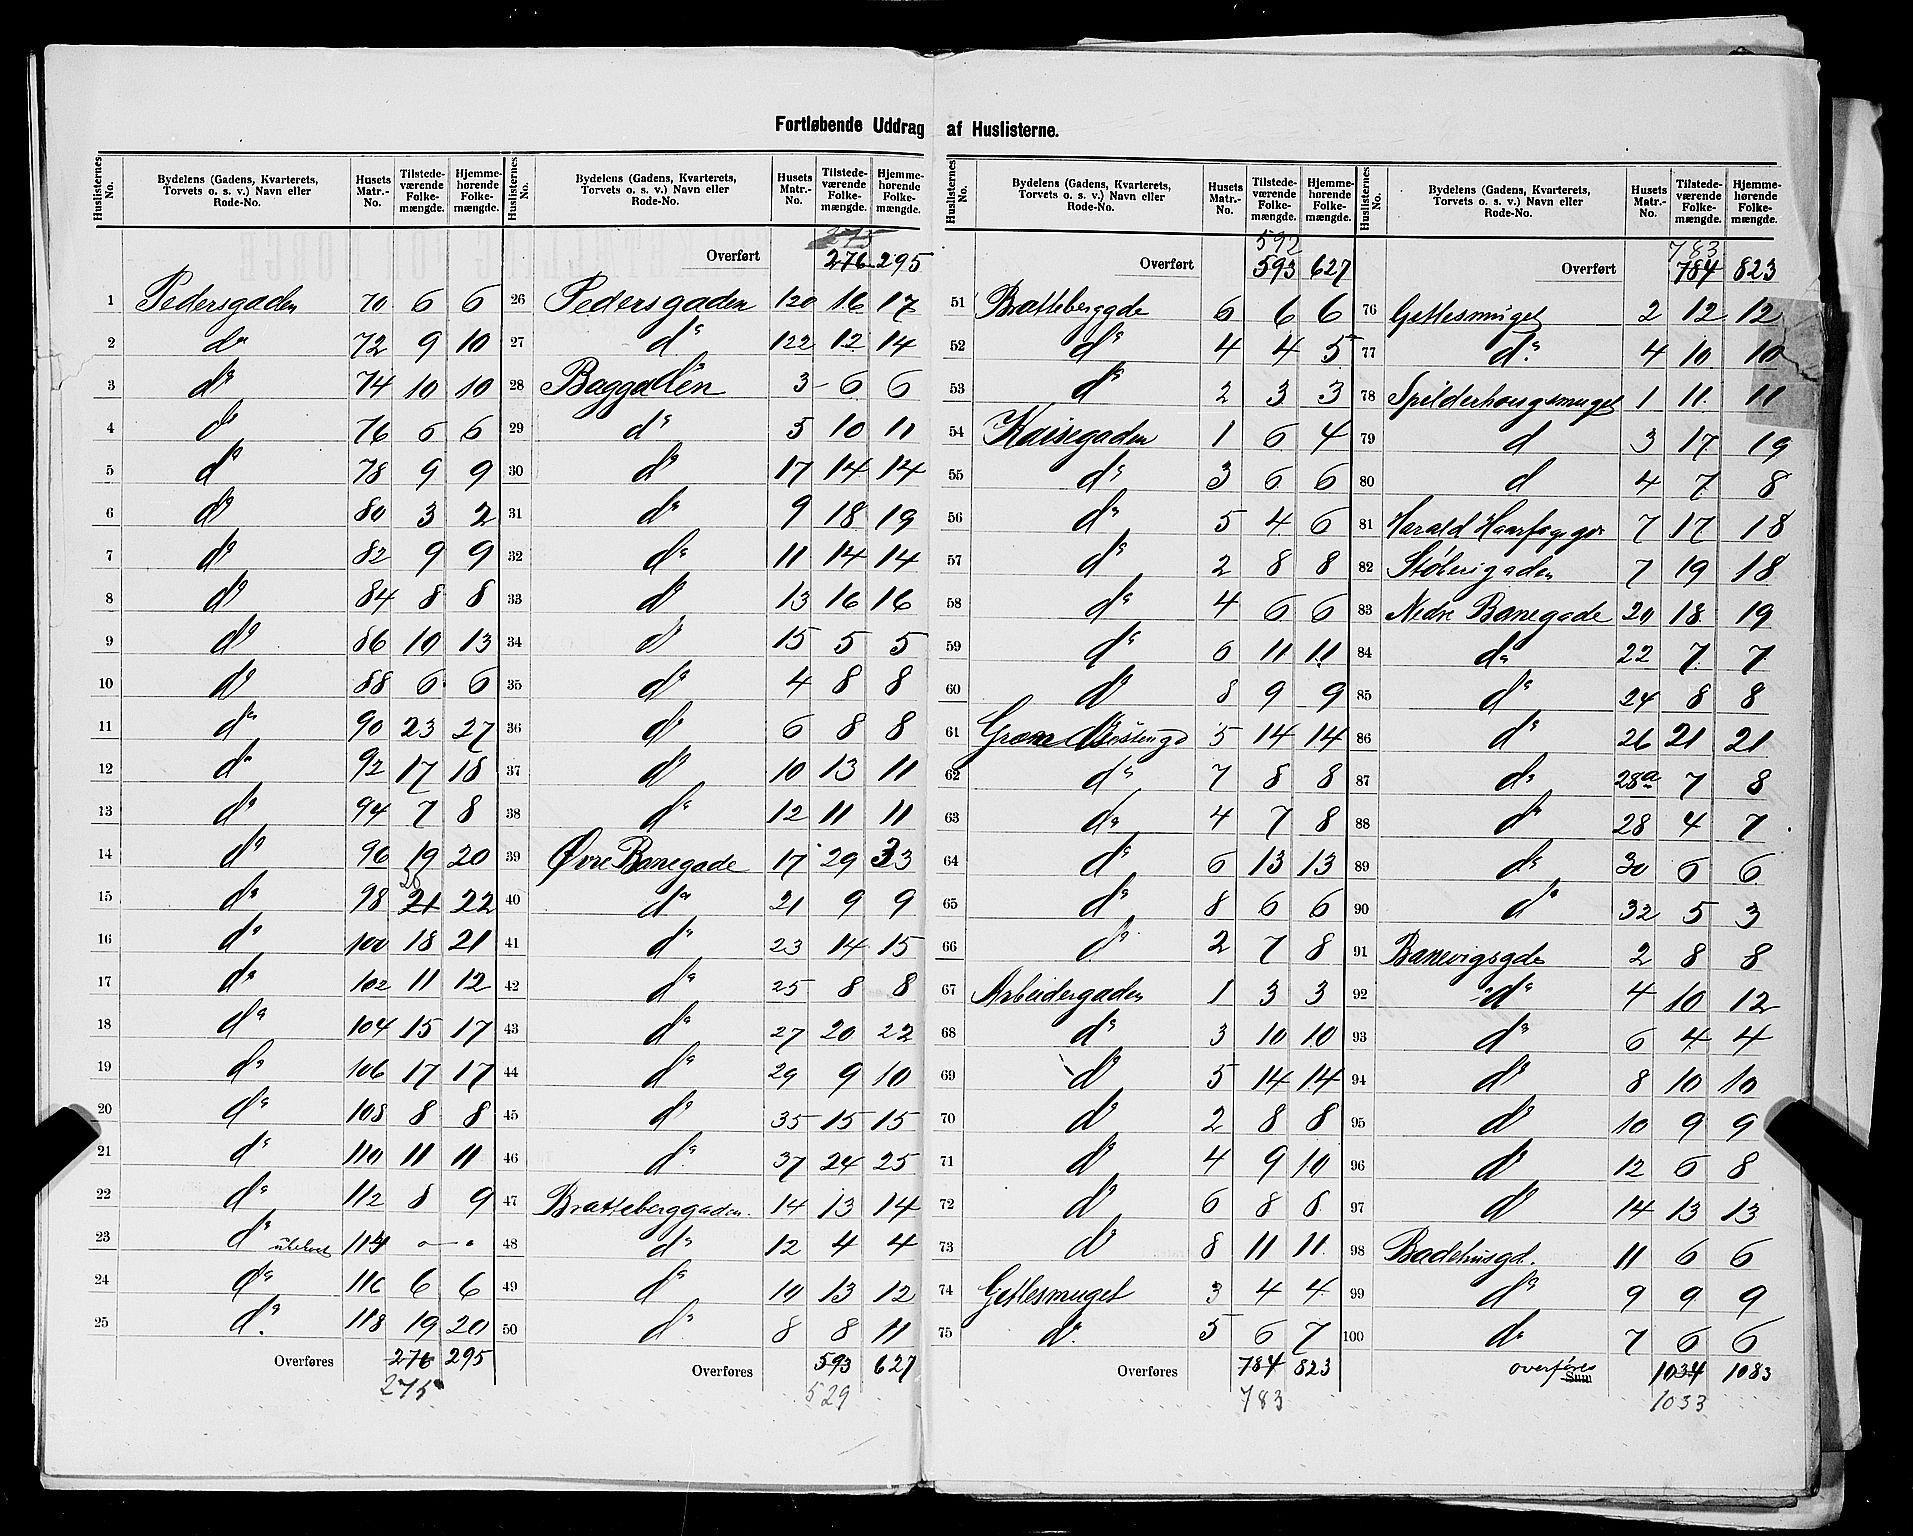 Fortløbende Uddrag af Huslisterne.
Huslisternes No. | Bydelens (Gadens, Kvarterets, Torvets o. s. v.) Navn eller Rode-No. | Husets Matr.-No. | Tilstede-værende Folke-mængde. | Hjemme-hørende Folke-mængde.
1 Pedersgaden 70 6 6
2 do 72 9 10
3 do 74 10 10
4 do 76 6 6
5 do 78 9 9
6 do 80 3 2
7 do 82 9 9
8 do 84 8 8
9 do 86 10 13
10 do 88 6 6
11 do 90 23 27
12 do 92 17 18
13 do 94 7 8
14 do 96 19 20
15 do 98 20 21 22
16 do 100 18 21
17 do 102 11 12
18 do 104 15 17
19 do 106 17 17
20 do 108 8 8
21 do 110 11 11
22 do 112 8 9
23 do ubeboet 114 - -
24 do 116 6 6
25 do 118 19 20
Overføres 276 295
275
Huslisternes No. | Bydelens (Gadens, Kvarterets, Torvets o. s. v.) Navn eller Rode-No. | Husets Matr.-No. | Tilstede-værende Folke-mængde. | Hjemme-hørende Folke-mængde.
275
Overført 276 295
26 Pedersgaden 120 16 17
27 do 122 12 14
28 Baggaden 3 6 6
29 do 5 10 11
30 do 17 14 14
31 do 9 18 19
32 do 11 14 14
33 do 13 16 16
34 do 15 5 5
35 do 4 8 8
36 do 6 8 8
37 do 10 13 11
38 do 12 11 11
39 Øvre Banegade 17 29 33
40 do 21 9 9
41 do 23 14 15
42 do 25 8 8
43 do 27 20 22
44 do 29 9 10
45 do 35 15 15
46 do 37 24 25
47 Bratteberggaden. 14 13 14
48 do 12 4 4
49 do 10 13 12
50 do 8 8 11
Overføres 593 627
529
Huslisternes No. | Bydelens (Gadens, Kvarterets, Torvets o. s. v.) Navn eller Rode-No. | Husets Matr.-No. | Tilstede-værende Folke-mængde. | Hjemme-hørende Folke-mængde.
592
Overført 593 627
51 Bratteberggde 6 6 6
52 do 4 4 5
53 do 2 3 3
54 Kaisegaden 1 6 4
55 do 3 6 6
56 do 5 4 6
57 do 2 8 8
58 do 4 6 6
59 do 6 11 11
60 do 8 9 9
61 5 14 14
62 do 7 8 8
63 do 4 7 8
64 do 6 13 13
65 do 8 6 6
66 do 2 7 8
67 Arbeidergaden 1 3 3
68 do 3 10 10
69 do 5 14 14
70 do 2 8 8
71 do 4 9 10
72 do 6 8 8
73 do 8 11 11
74 Getlesmuget 3 4 4
75 do 5 6 7
Overføres 784 823
783
Huslisternes No. | Bydelens (Gadens, Kvarterets, Torvets o. s. v.) Navn eller Rode-No. | Husets Matr.-No. | Tilstede-værende Folke-mængde. | Hjemme-hørende Folke-mængde.
783
Overført 784 823
76 Getlesmuget 2 12 12
77 do 4 10 10
78 Spilderhougsmuget 1 11 11
79 d 3 17 19
80 d 4 7 8
81 Harald Haarfagegr 7 17 18
82 Støberigaden 7 19 18
83 Nedre Banegade 20 18 19
84 do 22 7 7
85 do 24 8 8
86 do 26 21 21
87 do 28a 7 8
88 do 28 4 7
89 do 30 6 6
90 do 32 5 3
91 Banevigsgde 2 8 8
92 do 4 10 12
93 do 6 4 4
94 do 8 10 10
95 do 10 9 9
96 do 12 6 8
97 do 14 13 13
98 Badehusgd. 11 6 6
99 do 9 9 9
100 do 7 6 6
overføres Sum 1034 1083
1033